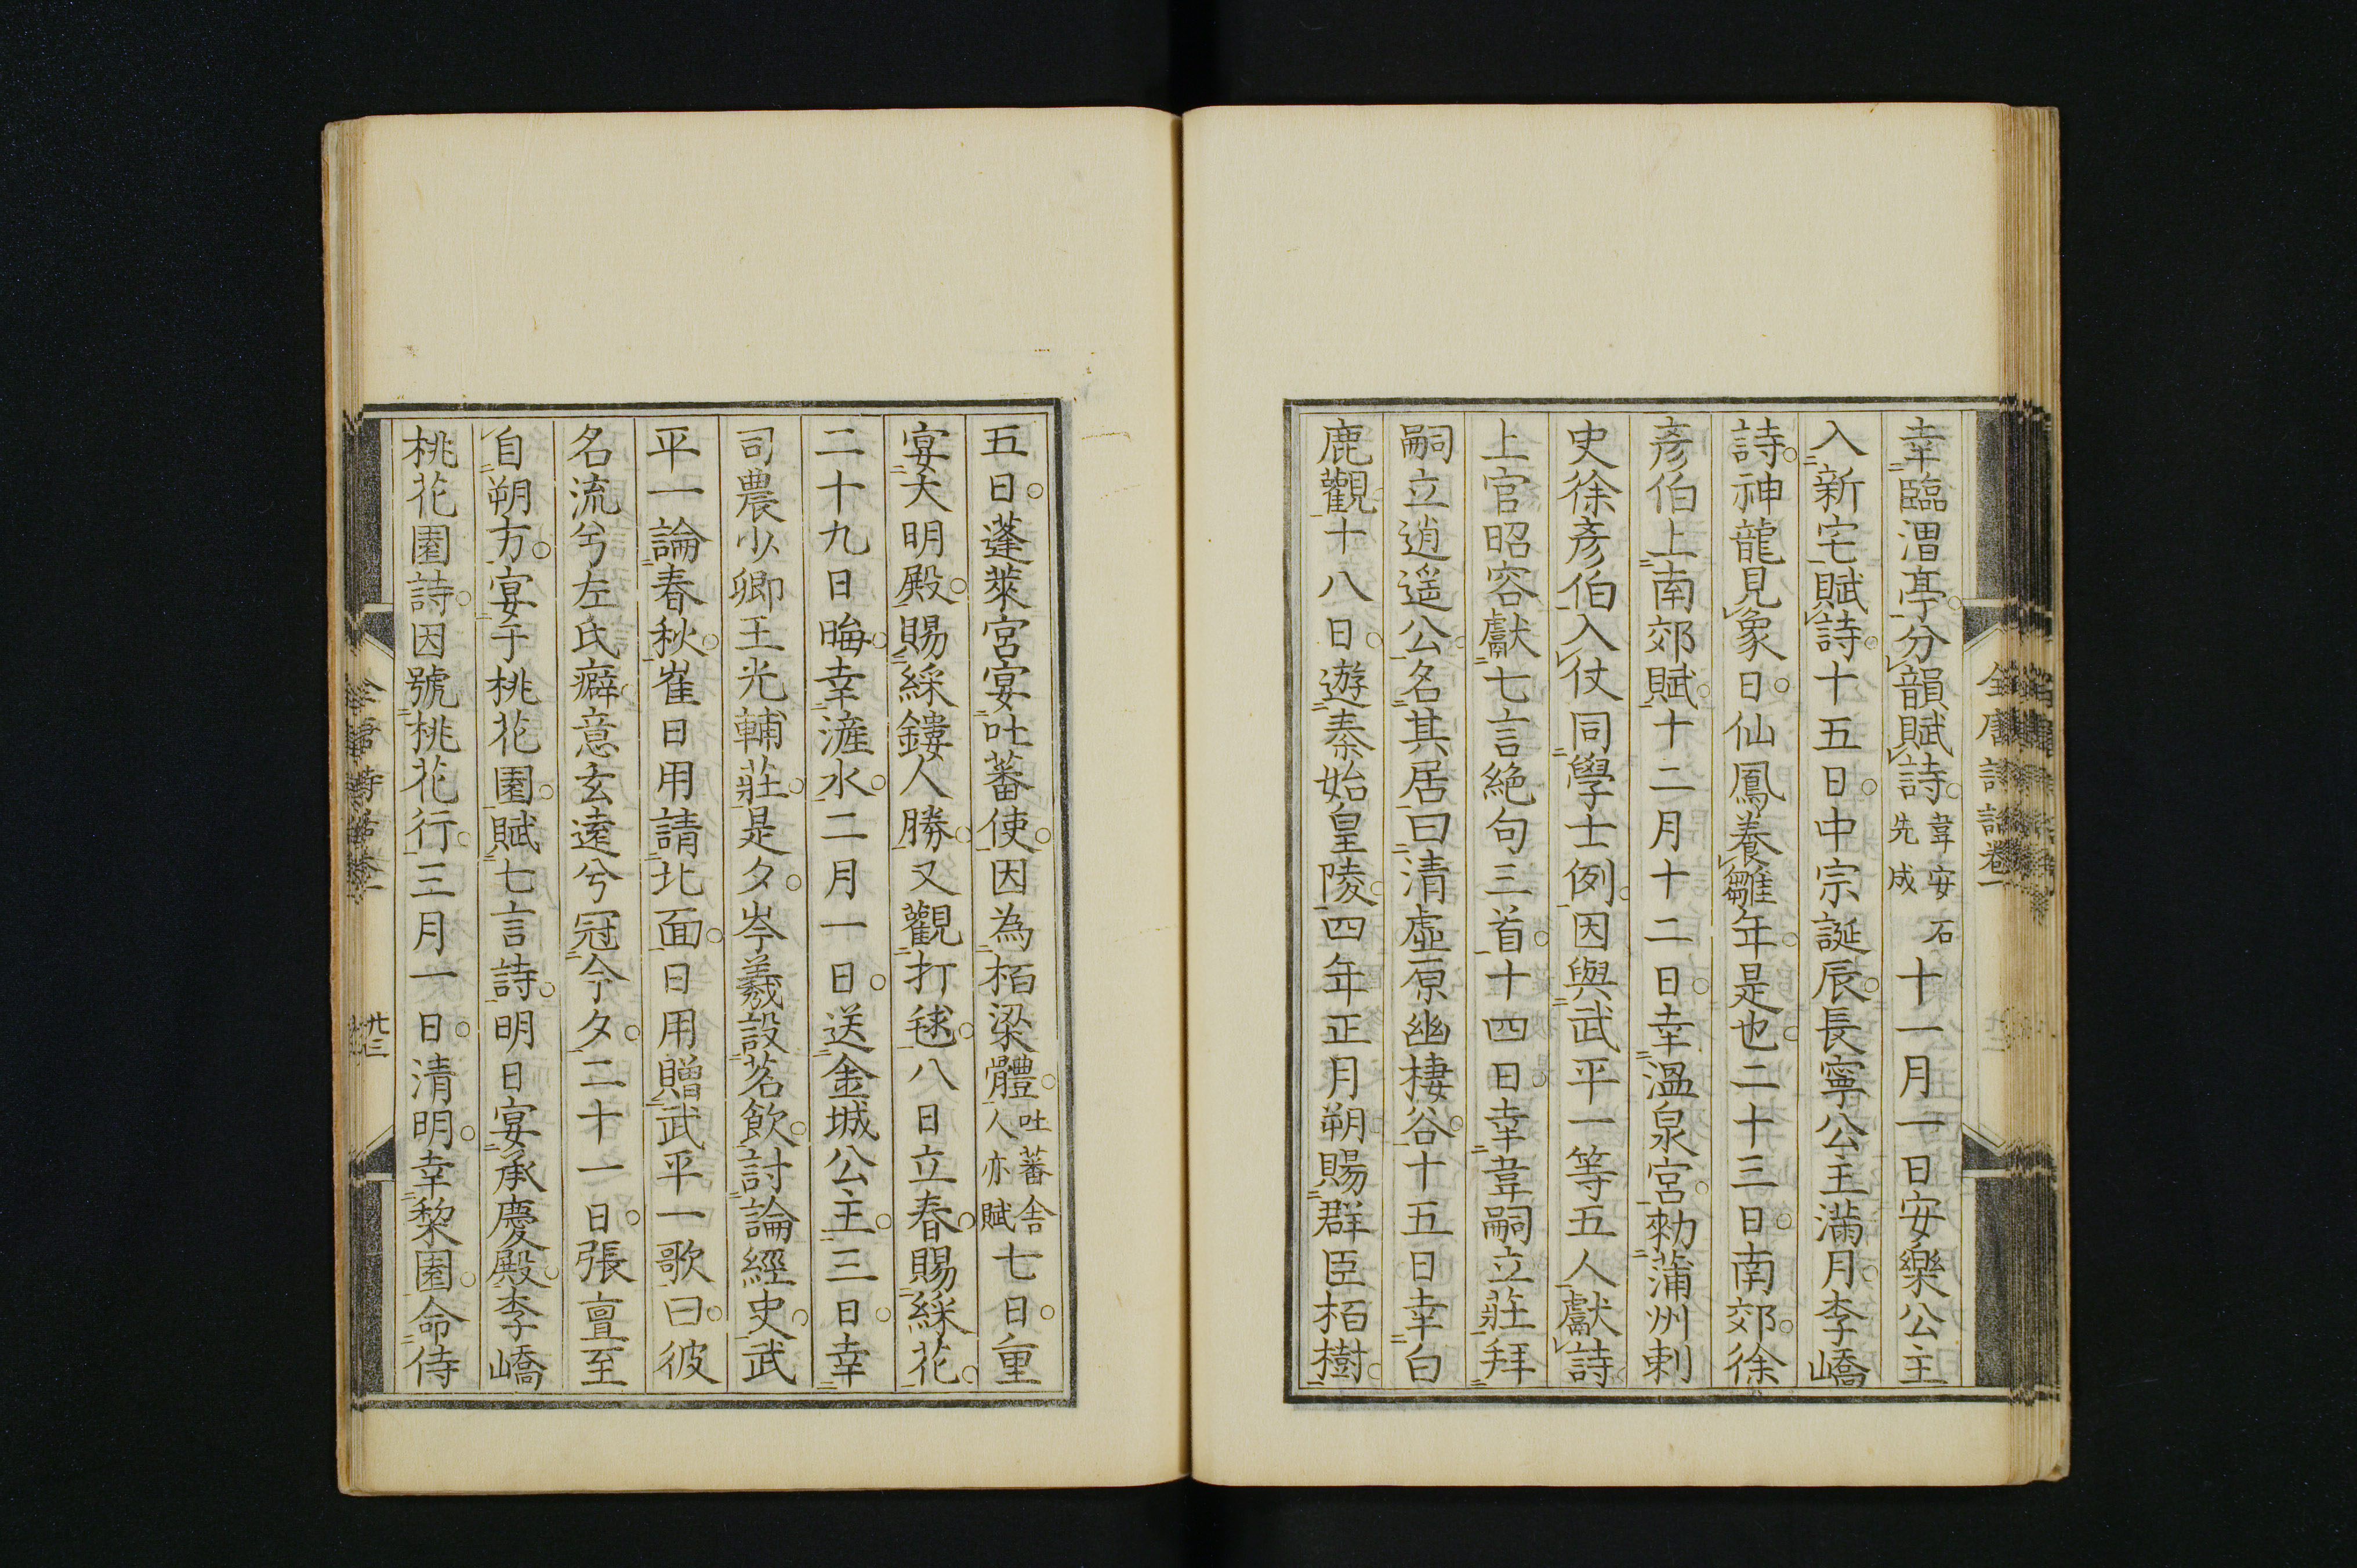 全唐詩話卷一
幸臨渭亭分韻賦詩韋安石先成十一月一日安樂公主
入新宅賦詩十五日中宗誕辰長寧公主滿月李嶠
詩神龍見象日仙鳳養雛年是也二十三日南郊徐
彥伯上南郊賦十二月十二日幸溫泉宮勑蒲州刺
史徐彥伯入仗同學士例因與武平一等五人獻詩
上官昭容獻七言絕句三首十四日幸韋嗣立莊拜
嗣立逍遥公名其居曰清虛原幽棲谷十五日幸白
鹿觀十八日遊秦始皇陵四年正月朔賜群臣栢樹
五日蓬萊宮宴吐蕃使因為栢梁體吐蕃舍人亦賦七日重
宴大明殿賜綵鏤人勝又觀打毬八日立春賜綵花
二十九日晦幸滻水二月一日送金城公主三日幸
司農少卿王光輔莊是夕岑羲設茗飲討論經史武
平一論春秋崔日用請北面日用贈武平一歌曰彼
名流兮左氏癖意玄遠兮冠今夕二十一日張亶至
自朔方宴于桃花園賦七言詩明日宴承慶殿李嶠
桃花園詩因號桃花行三月一日清明幸黎園命侍
廿三